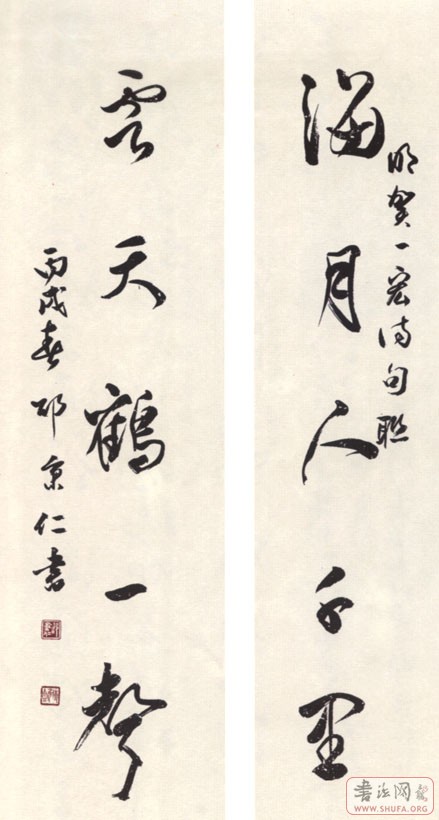 海月人千里
明贺一宏诗句联
云天鹤一声
丙戌春邓京仁书
书法网
WWW.SHUFA.ORG